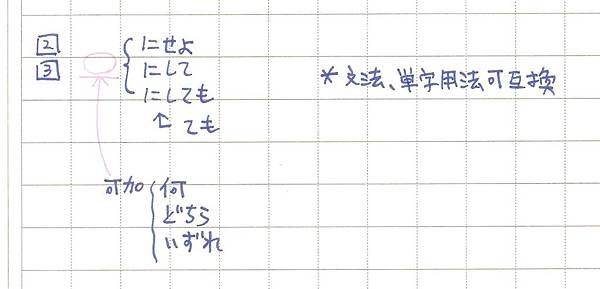 2 にせよ
3 にして
にしても
↑ ても
*文法、単字用法可互換
可加 何
どちら
いずれ